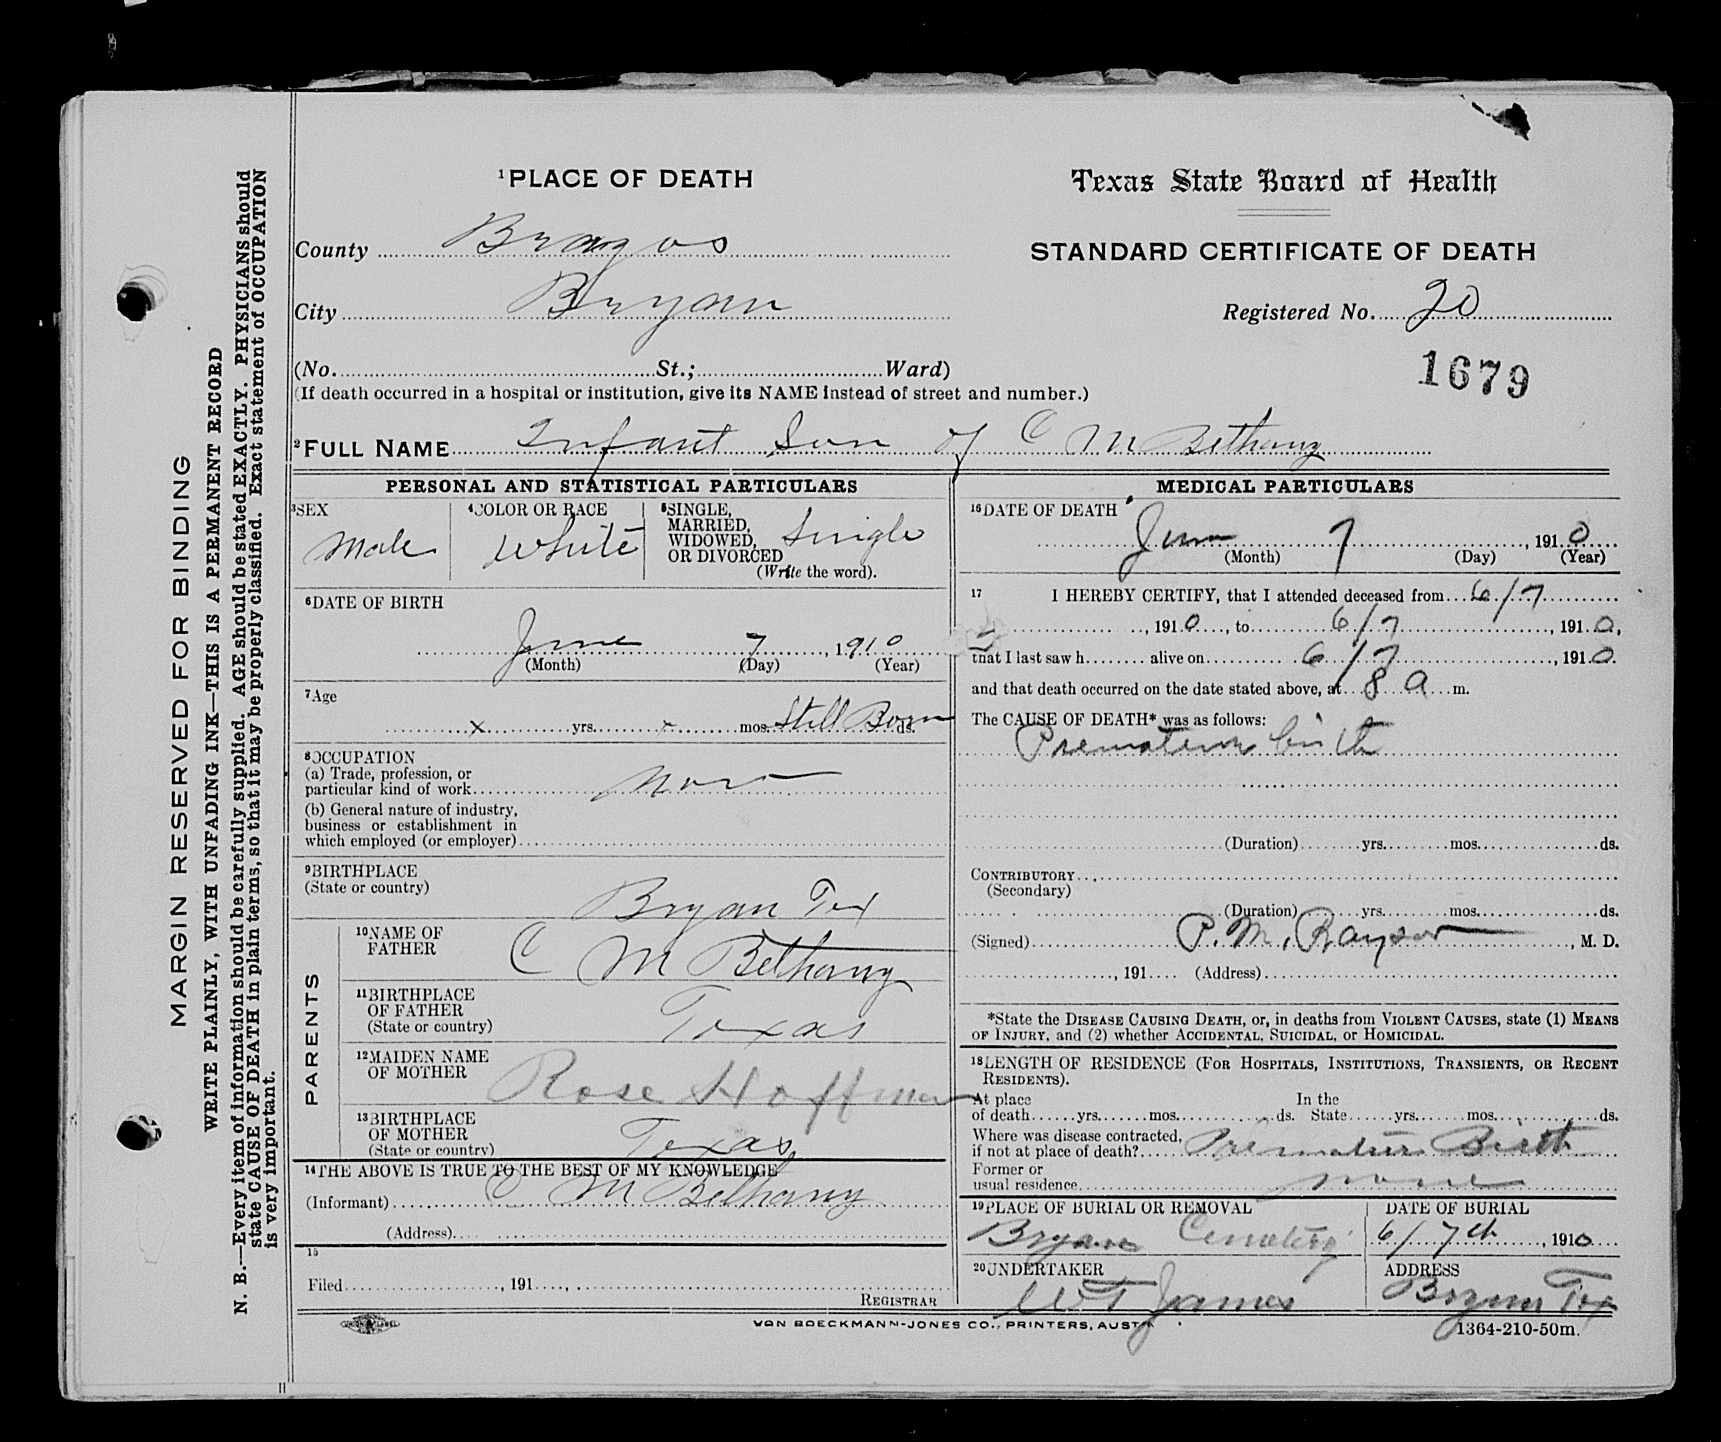 MARGIN RESERVED FOR BINDING
WRITE PLAINLY, WITH UNFADING INK—THIS IS A PERMANENT RECORD
N. B.—Every item of information should be carefully supplied. AGE should be stated EXACTLY. PHYSICIANS should
state CAUSE OF DEATH in plain terms, so that it may be properly classified. Exact statement of OCCUPATION
is very important.
1 PLACE OF DEATH
County Brazos
City Bryan
(No. St.; Ward)
(If death occurred in a hospital or institution, give its NAME instead of street and number.)
Texas State Board of Health
STANDARD CERTIFICATE OF DEATH
Registered No. 20
1679
2 FULL NAME Infant Son of C M Bethany
PERSONAL AND STATISTICAL PARTICULARS
3 SEX
Male
4 COLOR OR RACE
White
5 SINGLE,
MARRIED,
WIDOWED,
OR DIVORCED
(Write the word).
Single
6 DATE OF BIRTH
June 7, 1910
(Month) (Day) (Year)
7 Age
x yrs. x mos. Still Born ds.
8 OCCUPATION
(a) Trade, profession, or
particular kind of work
(b) General nature of industry,
business or establishment in
which employed (or employer)
9 BIRTHPLACE
(State or country)
Bryan Tex
PARENTS
10 NAME OF
FATHER
C M Bethany
11 BIRTHPLACE
OF FATHER
(State or country)
Texas
12 MAIDEN NAME
OF MOTHER
Rose Hoffman
13 BIRTHPLACE
OF MOTHER
(State or country)
Texas
14 THE ABOVE IS TRUE TO THE BEST OF MY KNOWLEDGE
(Informant) C M Bethany
(Address)
15
Filed , 191 ,
REGISTRAR
MEDICAL PARTICULARS
16 DATE OF DEATH
June 7, 1910
(Month) (Day) (Year)
17 I HEREBY CERTIFY, that I attended deceased from 6/7
, 1910, to 6/7, 1910,
that I last saw h alive on 6/7, 1910.
and that death occurred on the date stated above, at 8 a m.
The CAUSE OF DEATH* was as follows:
Premature birth
(Duration) yrs. mos. ds.
CONTRIBUTORY
(Secondary)
(Duration) yrs. mos. ds.
(Signed) P. M. Raysor, M. D.
, 191 (Address)
*State the DISEASE CAUSING DEATH, or, in deaths from VIOLENT CAUSES, state (1) MEANS
OF INJURY, and (2) whether ACCIDENTAL, SUICIDAL, OR HOMICIDAL.
18 LENGTH OF RESIDENCE (FOR HOSPITALS, INSTITUTIONS, TRANSIENTS, OR RECENT
RESIDENTS).
At place In the
of death yrs. mos. ds. State yrs. mos. ds.
Where was disease contracted,
if not at place of death? Premature Birth
Former or
usual residence none
19 PLACE OF BURIAL OR REMOVAL
Bryan Cemetery
DATE OF BURIAL
6/7th, 1910
20 UNDERTAKER
W T James
ADDRESS
Bryan Tex
VON BOECKMANN-JONES CO., PRINTERS, AUSTIN
1364-210-50m.
11